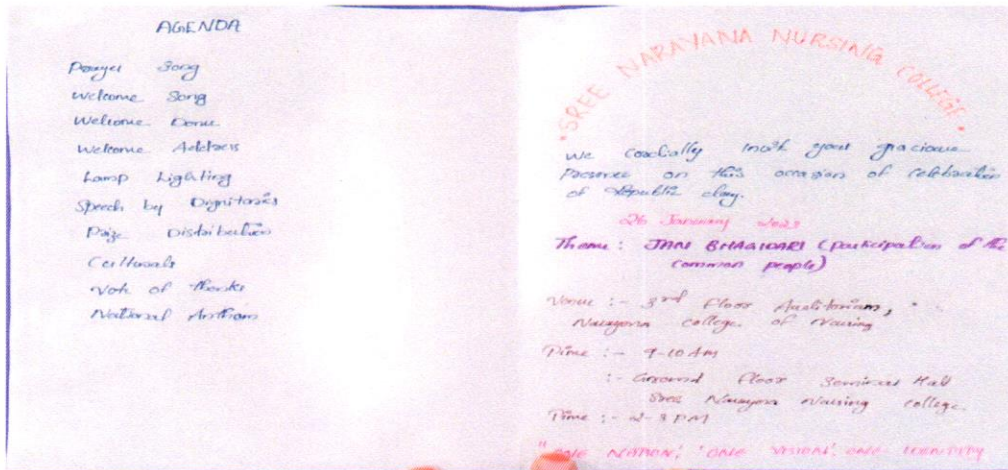 AGENDA
Prayer Song
Welcome Song
Welcome Dance
Welcome Address
Lamp Lighting
Speech by Dignitaries
Prize Distribution
Culturals
Vote of Thanks
National Anthem
"SREE NARAYANA NURSING COLLEGE"
We Cordially invite your gracious
Presence on this occasion of Celebration
of Republic day.
26 January 2023
Theme : JAN BHAGIDARI (participation of the
common people)
Venue :- 3rd Floor Auditorium,
Narayana College of Nursing
Time :- 9-10 Am
:- Ground Floor Seminar Hall
Sree Narayana Nursing College.
Time :- 2-3 PM
"ONE NATION', 'ONE VISION', ONE IDENTITY